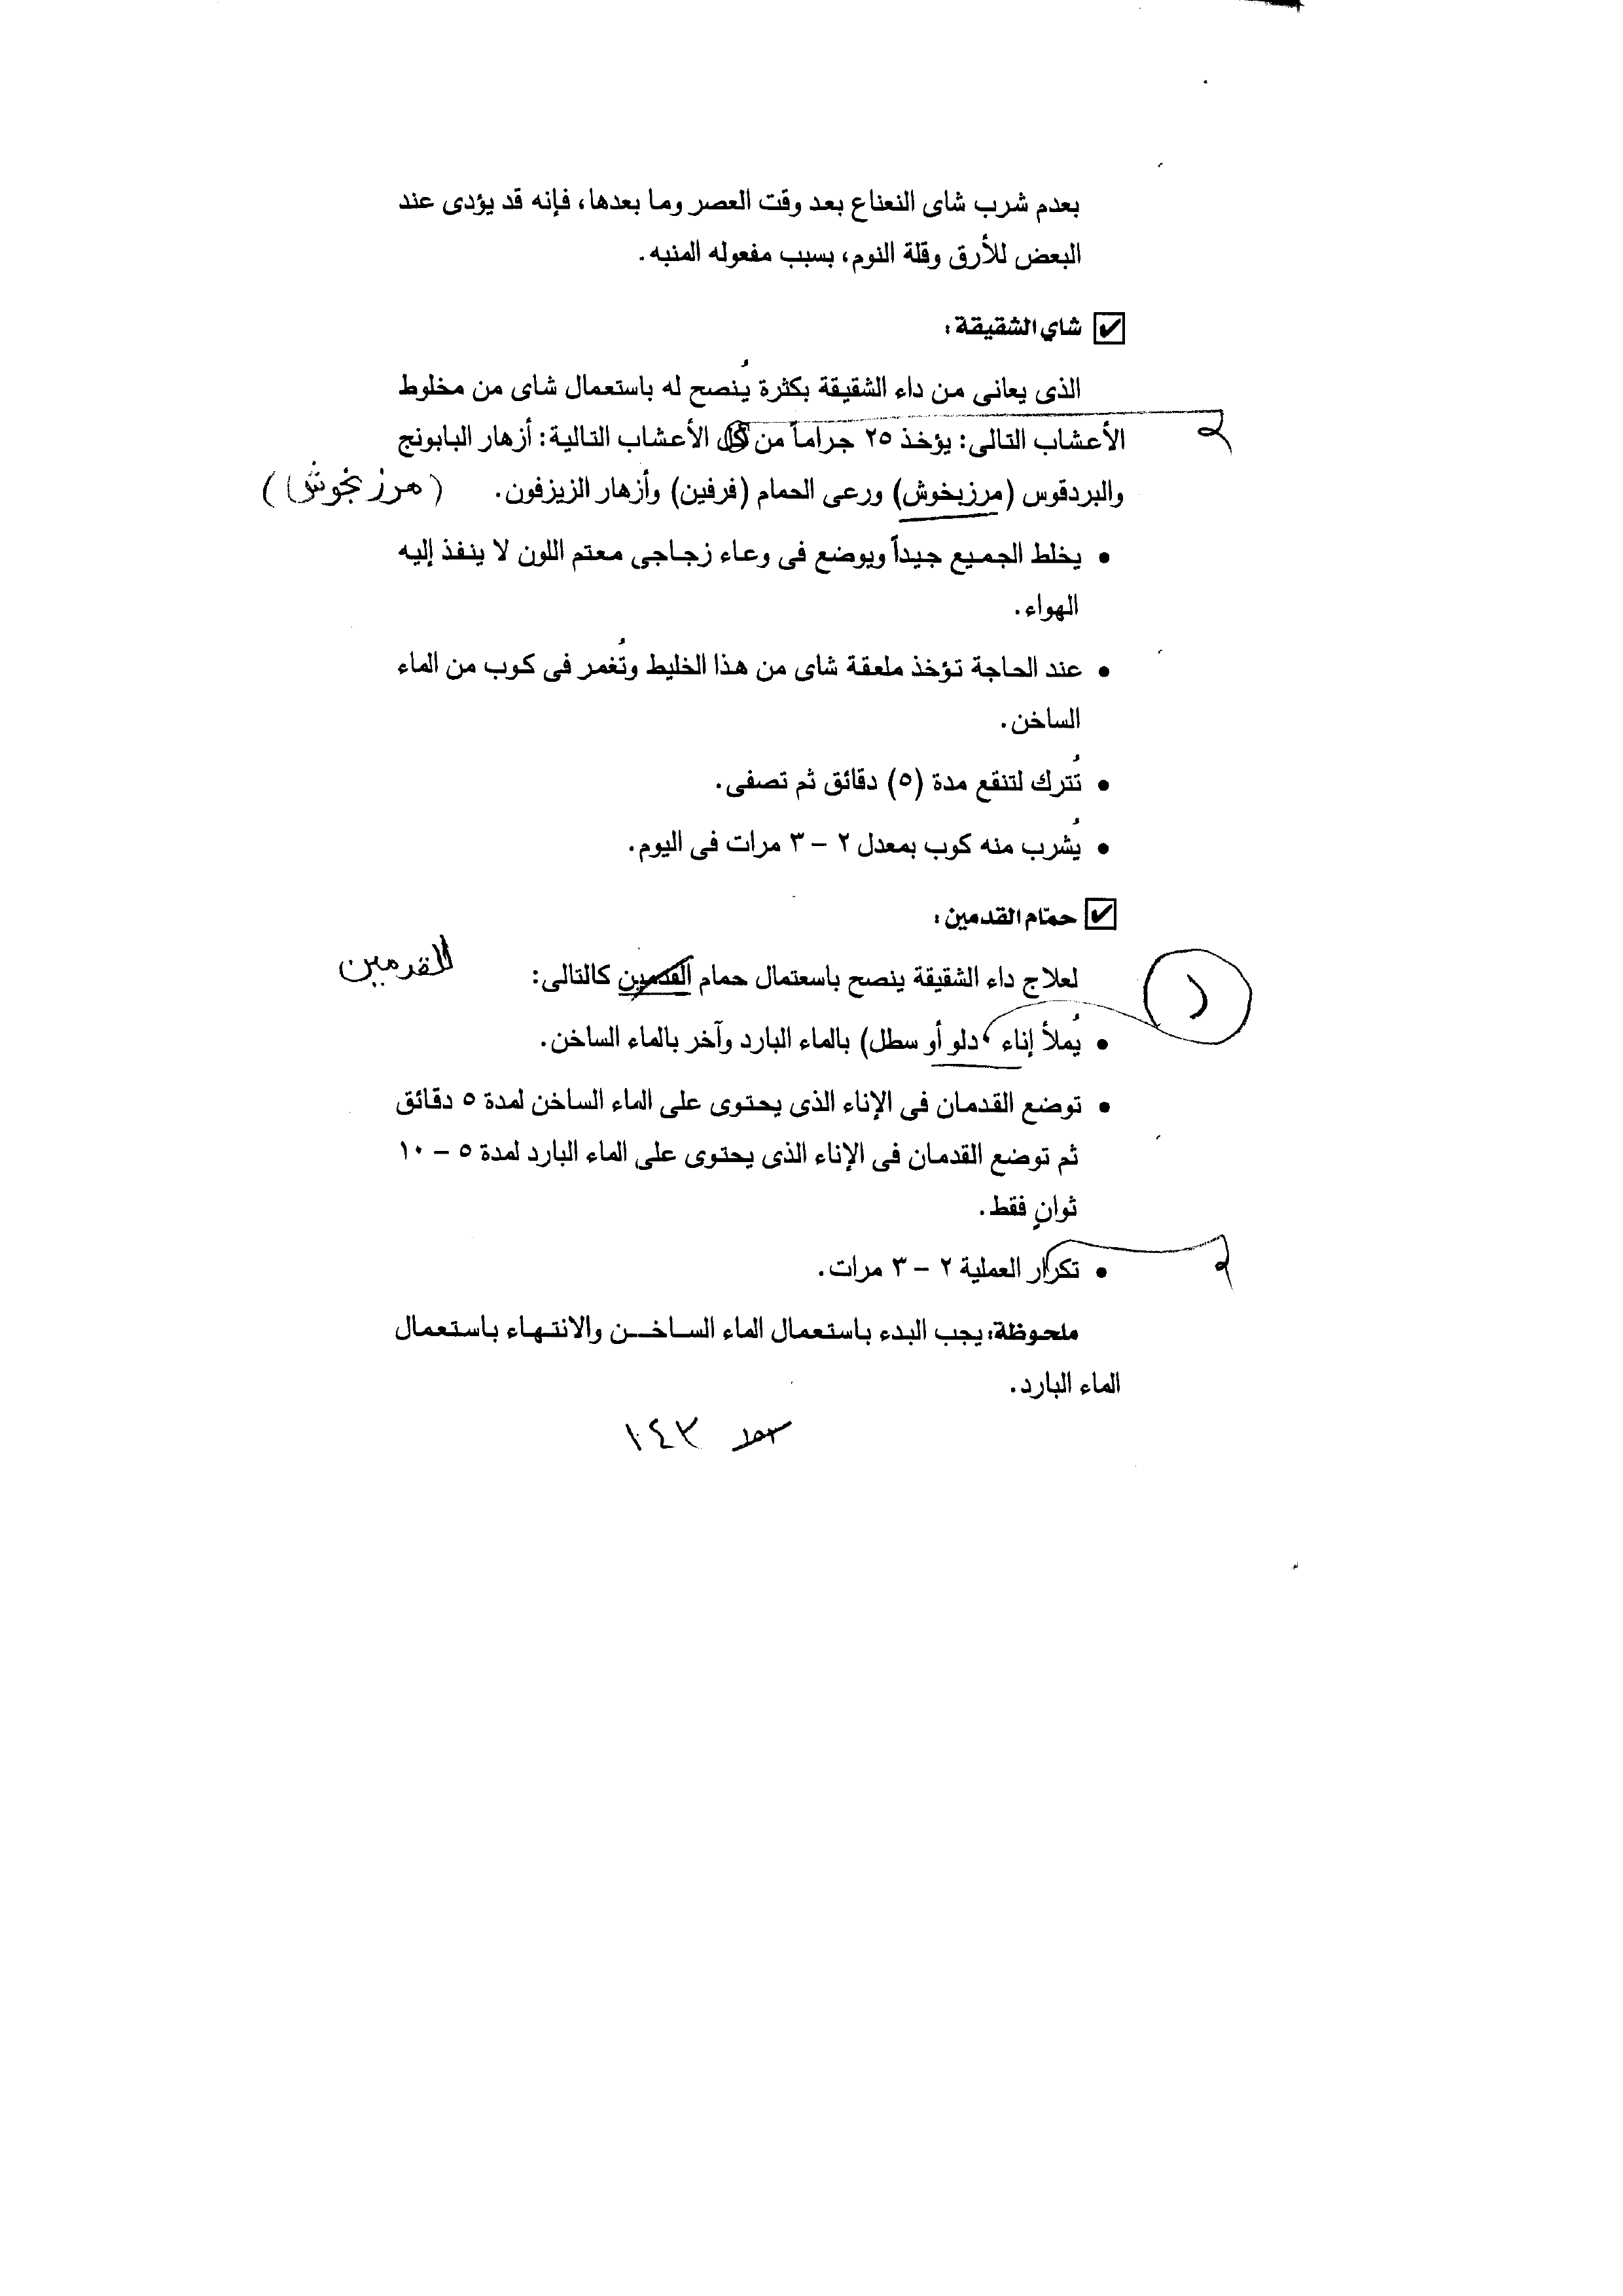 بعدم شرب شاى النعناع بعد وقت العصر وما بعدها، فإنه قد يؤدى عند
البعض للأرق وقلة النوم، بسبب مفعوله المنبه.
شاي الشقيقة:
الذى يعانى من داء الشقيقة بكثرة يُنصح له باستعمال شاى من مخلوط
الأعشاب التالى: يؤخذ ٢٥ جراماً من كل الأعشاب التالية: أزهار البابونج
والبردقوس (مرزبخوش) ورعى الحمام (فرفين) وأزهار الزيزفون. (مرزنجوش)
• يخلط الجميع جيداً ويوضع فى وعاء زجاجى معتم اللون لا ينفذ إليه
الهواء.
• عند الحاجة تؤخذ ملعقة شاى من هذا الخليط وتُغمر فى كوب من الماء
الساخن.
• تُترك لتنقع مدة (٥) دقائق ثم تصفى.
• يُشرب منه كوب بمعدل ٢ – ٣ مرات فى اليوم.
حمّام القدمين:
لعلاج داء الشقيقة ينصح باسعتمال حمام القدمين كالتالى: للقدمين
• يُملأ إناء دلو أو سطل) بالماء البارد وآخر بالماء الساخن.
• توضع القدمان فى الإناء الذى يحتوى على الماء الساخن لمدة ٥ دقائق
ثم توضع القدمان فى الإناء الذى يحتوى على الماء البارد لمدة ٥ – ١٠
ثوانٍ فقط.
• تكرار العملية ٢ – ٣ مرات.
ملحوظة: يجب البدء باستعمال الماء الساخن والانتهاء باستعمال
الماء البارد.
١٤٣